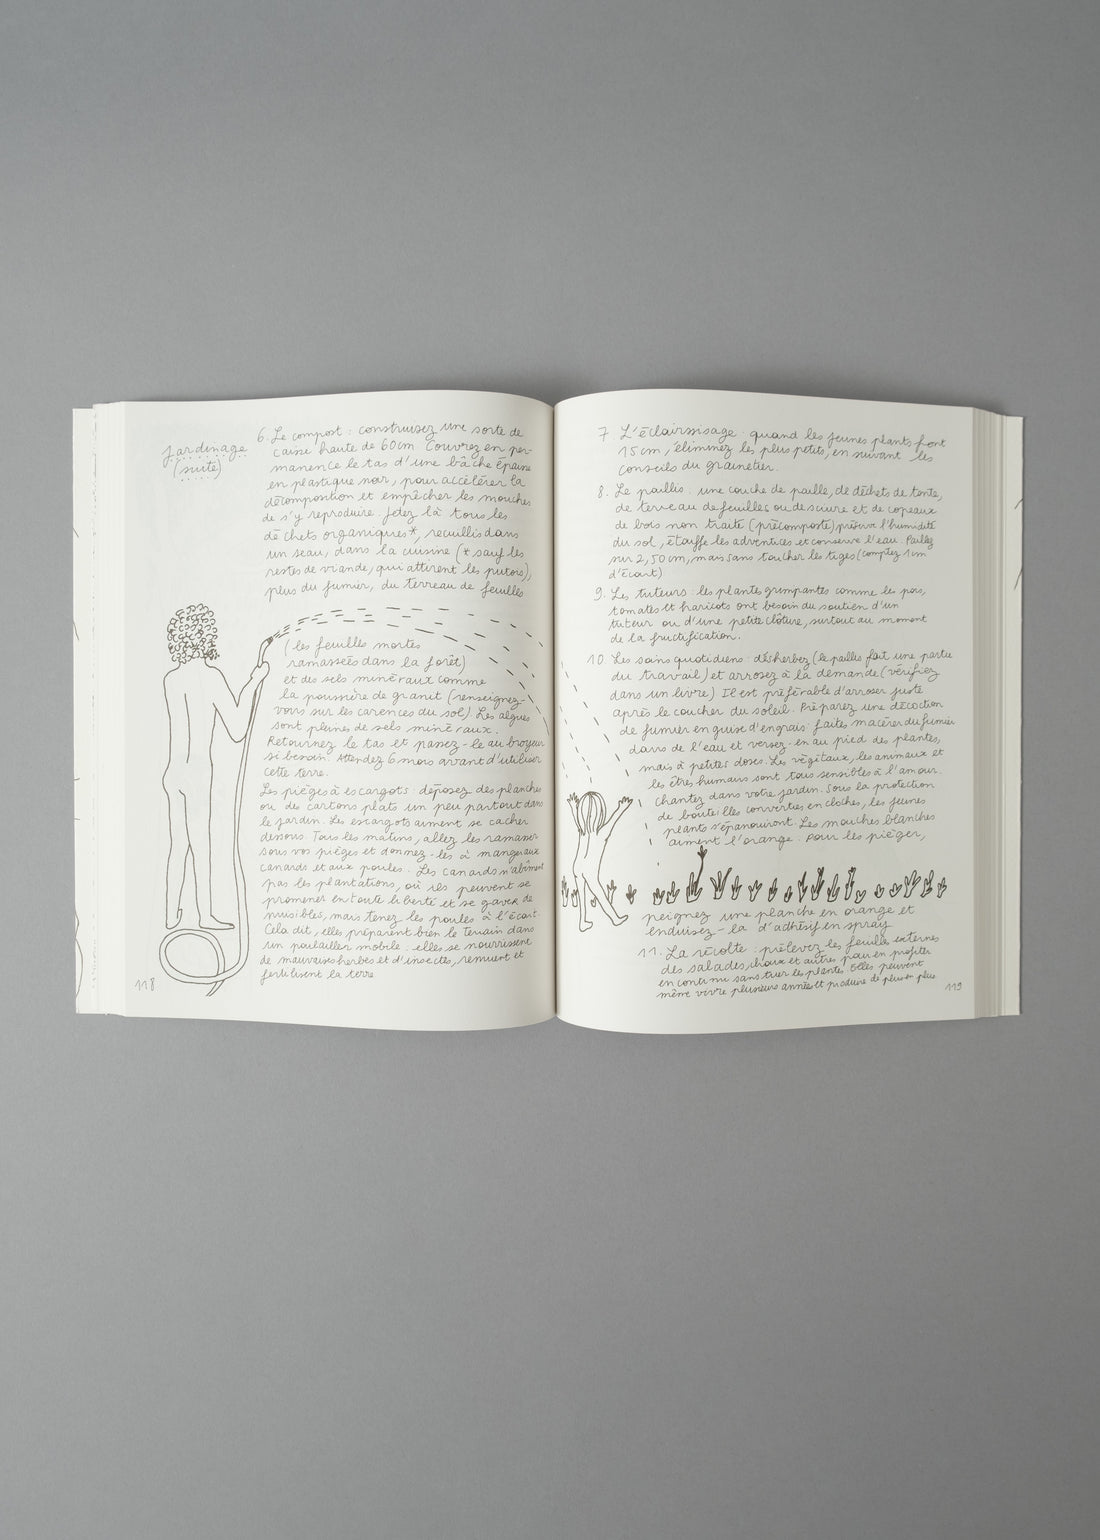 Jardinage
(suite)
6. Le compost : construisez une sorte de
caisse haute de 60cm Couvrez en per-
manence le tas d'une bâche épaisse
en plastique noir, pour accélérer la
décomposition et empêcher les mouches
de s'y reproduire. Jetez là tous les
déchets organiques*, recuillis dans
un seau, dans la cuisine (* sauf les
restes de viande, qui attirent les putois),
plus du fumier, du terreau de feuilles
(les feuilles mortes
ramassées dans la forêt)
et des sels minéraux comme
la poussière de granit (renseignez-
vous sur les carences du sol) Les algues
sont pleines de sels minéraux.
Retournez le tas et passez-le au broyeur
si besoin. Attendez 6 mois avant d'utiliser
cette terre.
Les pièges à escargots : déposez des planches
ou des cartons plats un peu partout dans
le jardin. Les escargots aiment se cacher
dessous. Tous les matins, allez les ramasser
sous vos pièges et donnez-les à manger aux
canards et aux poules. Les canards n'abîment
pas les plantations, où ils peuvent se
promener en toute liberté et se gaver de
nuisibles, mais tenez les poules à l'écart.
Cela dit, elles préparent bien le terrain dans
un poulailler mobile : elles se nourrissent
de mauvaises herbes et d'insectes, remuent et
fertilisent la terre
118
7 L'éclaircissage : quand les jeunes plants font
15 cm, éliminez les plus petits, en suivant les
conseils du grainetier.
8. Le paillis : une couche de paille, de déchets de tonte,
de terreau de feuilles ou de sciure et de copeaux
de bois non traité (précomposté) préserve l'humidité
du sol, étouffe les adventices et conserve l'eau. Paillez
sur 2,50 cm, mais sans toucher les tiges (comptez 1 cm
d'écart)
9. Les tuteurs : les plantes grimpantes comme les pois,
tomates et haricots ont besoin du soutien d'un
tuteur ou d'une petite clôture, surtout au moment
de la fructification.
10 Les soins quotidiens : désherbez (le paillis fait une partie
du travail) et arrosez à la demande (vérifiez
dans un livre) Il est préférable d'arroser juste
après le coucher du soleil. Préparez une décoction
de fumier en guise d'engrais : faites macérer du fumier
dans de l'eau et versez-en au pied des plantes,
mais à petites doses. Les végétaux, les animaux et
les êtres humains sont tous sensibles à l'amour.
Chantez dans votre jardin. Sous la protection
de bouteilles converties en cloches, les jeunes
plants s'épanouiront. Les mouches blanches
aiment l'orange. Pour les piéger,
peignez une planche en orange et
enduisez-la d'adhésif en spray
11. La récolte : prélevez les feuilles externes
des salades, choux et autres pour en profiter
en continu sans tuer les plantes. Elles peuvent
même vivre plusieurs années et produire de plus en plus
119